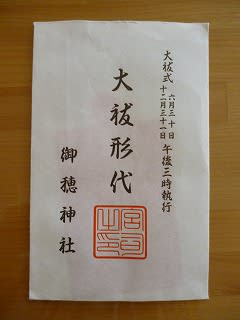 大祓式 六月三十日 十二月三十一日 午後三時執行
大祓形代
御穂神社
宮司之印